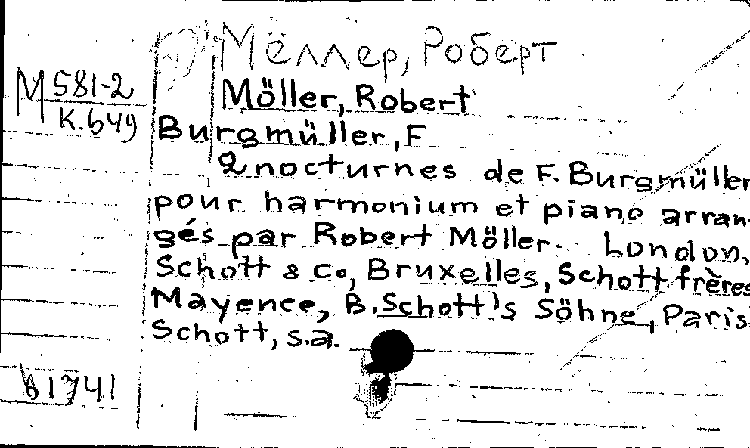 Мёллер, Роберт
М 581-2
К.649
Möller, Robert
Burgmüller, F
2 nocturnes de F. Burgmüller
pour harmonium et piano arran-
gés par Robert Möller. London,
Schott & Co, Bruxelles, Schott frères
Mayence, B. Schott's Söhne, Paris
Schott, s.a.
81741